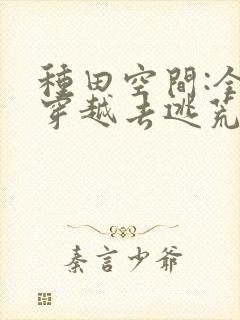 種田空間:全
穿越去逃荒
秦言少爺